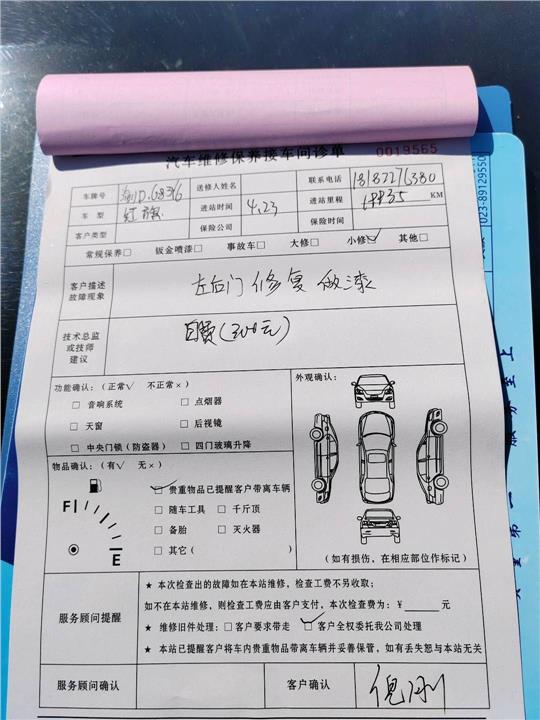 汽车维修保养接车问诊单 0019565
车牌号 送修人姓名 联系电话 18187276380
车 型 红旗 进站时间 4.23 进站里程 KM
客户类型 保险公司 保险时间
常规保养□ 钣金喷漆□ 事故车□ 大修□ 小修☑ 其他□
客户描述
故障现象
左后门 修复 做漆
技术总监
或技师
建议
自费(300元)
功能确认：(正常√ 不正常×)
□ 音响系统 □ 点烟器
□ 天窗 □ 后视镜
□ 中央门锁(防盗器) □ 四门玻璃升降
外观确认：
(如有损伤，在相应部位作标记)
物品确认：(有√ 无×)
☑ 贵重物品已提醒客户带离车辆
□ 随车工具 □ 千斤顶
□ 备胎 □ 灭火器
□ 其它( )
F
E
服务顾问提醒
★ 本次检查出的故障如在本站维修，检查工费不另收取；
如不在本站维修，则检查工费应由客户支付，本次检查费为：￥____元
★ 维修旧件处理：□客户要求带走 ☑客户全权委托我公司处理
★ 本站已提醒客户将车内贵重物品带离车辆并妥善保管，如有丢失恕与本站无关
服务顾问确认 客户确认 倪刚
023-89129550